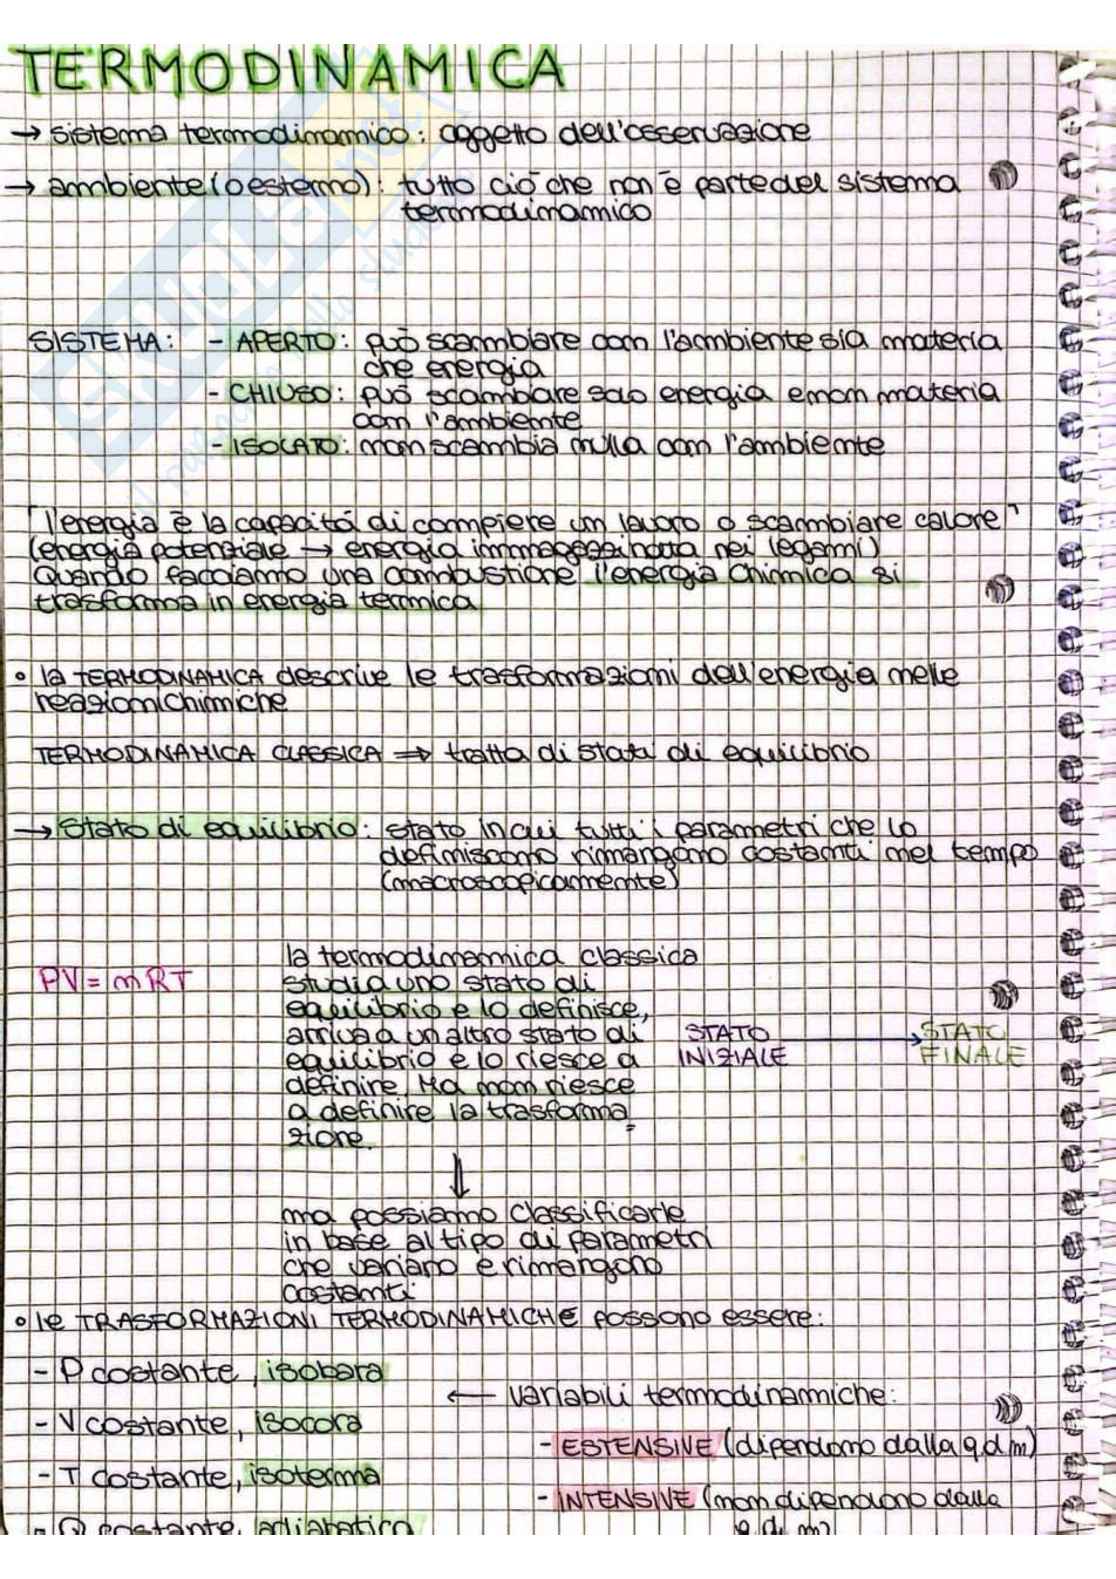 TERMODINAMICA
→ sistema termodinamico: oggetto dell'osservazione
→ ambiente (o esterno): tutto ciò che non è parte del sistema
termodinamico
SISTEMA: - APERTO: può scambiare con l'ambiente sia materia
che energia
- CHIUSO: può scambiare solo energia e non materia
con l'ambiente
- ISOLATO: non scambia nulla con l'ambiente
"l'energia è la capacità di compiere un lavoro o scambiare calore"
(energia potenziale → energia immagazzinata nei legami)
Quando facciamo una combustione l'energia chimica si
trasforma in energia termica
• la TERMODINAMICA descrive le trasformazioni dell'energia nelle
reazioni chimiche
TERMODINAMICA CLASSICA ⇒ tratta di stati di equilibrio
→ Stato di equilibrio: stato in cui tutti i parametri che lo
definiscono rimangono costanti nel tempo
(macroscopicamente)
PV = nRT
la termodinamica classica
studia uno stato di
equilibrio e lo definisce,
arriva a un altro stato di
equilibrio e lo riesce a
definire. Ma non riesce
a definire la trasforma
zione.
STATO INIZIALE → STATO FINALE
↓
ma possiamo classificarle
in base al tipo di parametri
che variano e rimangono
costanti
• le TRASFORMAZIONI TERMODINAMICHE possono essere:
- P costante, isobara
- V costante, isocora
- T costante, isoterma
- Q costante, adiabatica
← variabili termodinamiche:
- ESTENSIVE (dipendono dalla q.d.m)
- INTENSIVE (non dipendono dalla
q.d.m)